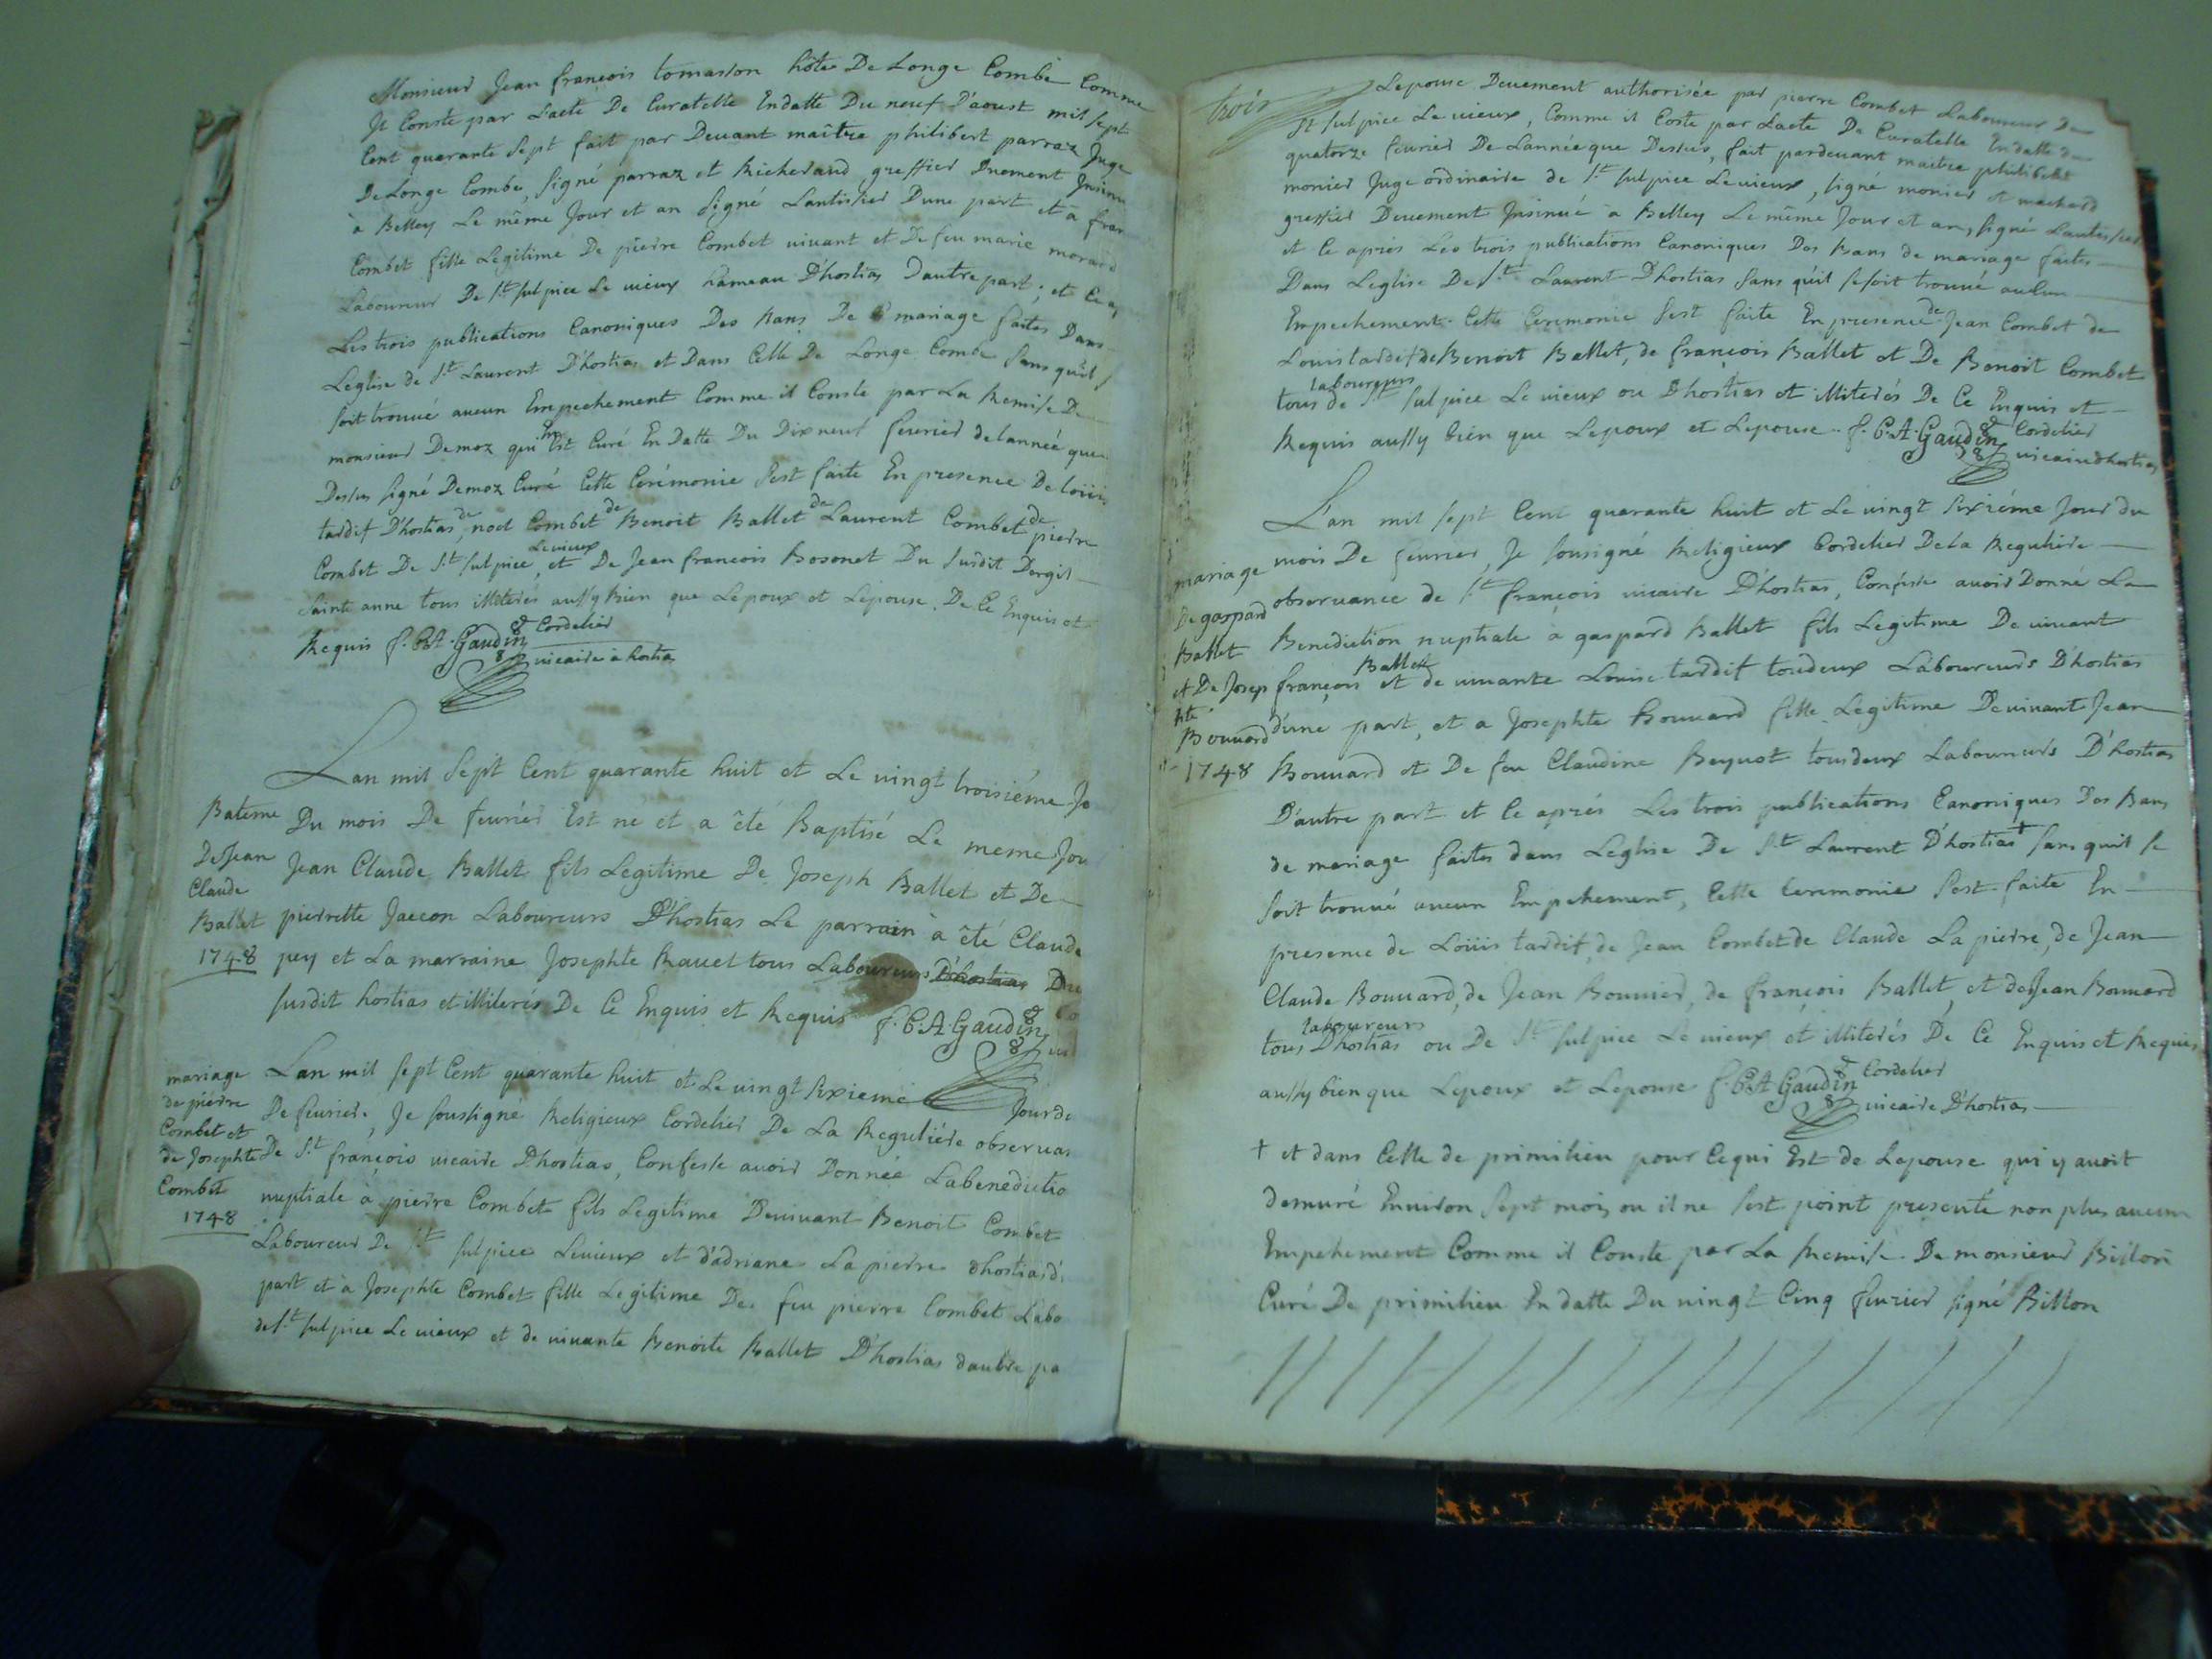 Monsieur Jean françois tomasson hôte De Longe Combe Comme
Il Conste par Lacte De Curatelle Endatte Du neuf D'aoust mil sept
Cent quarante sept fait par Devant maître philibert parraz Juge
De Longe Combe, signé parraz et Richerand greffier Duement Insinu
à Belley Le même Jour et an signé Lantissier Dune part et à fran
Combet fille Legitime De pierre Combet vivant et De feu marie morard
Laboureur De St sulpice Le vieux hameau D'hostias Dautre part; et Ce a,
Les trois publications Canoniques Des Bans De mariage faites Dans
Leglise de St Laurent D'hostias et Dans Celle De Longe Combe sans quil s
soit trouvé aucun Empechement Comme il Conste par La Remise De
monsieur Demoz qui En Est Curé En Datte Du Dix neuf fevrier de lannée que
Dessus signé Demoz Curé Cette Cérémonie sest faite En presence De Loüis
tardif D'hostias, de noel Combet de Benoit Ballet de Laurent Combet de pierre
Combet De St sulpice Le vieux, et De Jean françois Bosonet Du susdit Dorgis
Sainte anne tous illiterés aussy bien que Lepoux et Lépouse. De Ce Enquis et
Requis f. C.A. Gaudin Cordelier
vicaire à hostias
Lan mil sept Cent quarante huit et Le vingt troisiéme Jo
Batême Du mois De fevriér Est né et a êté Baptisé Le meme Jou
De Jean Jean Claude Ballet fils Legitime De Joseph Ballet et De
Claude
Ballet pierrette Jaccon Laboureurs D'hostias Le parrain à êté Claude
1748 pey et La marraine Josephte Ravet tous Laboureurs D'hostias Du
susdit hostias et illiterés De Ce Enquis et Requis f. C.A. Gaudin Co
vic
mariage Lan mil sept Cent quarante huit et Le vingt sixieme Jour de
de pierre De fevrier, Je soussigné Religieux Cordelier De La Reguliére observan
Combet et
de Josephte De St françois vicaire D'hostias, Confesse avoir Donnée La benedictio
Combet nuptiale à pierre Combet fils Legitime De vivant Benoit Combet
1748
Laboureur De St sulpice Levieux et d'adriane La pierre dhostias d'
part et à Josephte Combet fille Legitime De feu pierre Combet Labo
de St sulpice Le vieux et de vivante Benoite Ballet D'hostias dautre pa
trois
Lepouse Deuement authorisée par pierre Combet Laboureur De
St sulpice Le vieux, Comme il Coste par Lacte De Curatelle En datte du
quatorze fevrier De Lannée que Dessus, fait pardevant maitre philibert
monier Juge ordinaire de St sulpice Levieux, signé monier et machard
greffier Deuement Insinué à Belley Le même Jour et an, signé Lantissier
et Ce aprés Les trois publications Canoniques Des Bans de mariage faites
Dans Leglise De St Laurent D'hostias sans quil se soit trouvé aucun
Empechement. Cette Ceremonie sest faite En presence de Jean Combet de
Louis tardif de Benoit Ballet, de françois Ballet et De Benoit Combet
laboureurs
tous de St sulpice Le vieux ou D'hostias et illiterés De Ce Enquis et
Requis aussy bien que Lepoux et Lepouse. f. C.A. Gaudin Cordelier
vicaire dhostias
L'an mil sept Cent quarante huit et Le vingt sixiéme Jour du
mariage mois De fevrier, Je sousigné Religieux Cordelier De la Reguliére
De gaspard observance de St françois vicaire D'hostias, Confesse avoir Donné La
Ballet Benediction nuptiale à gaspard Ballet fils Legitime De vivant
et De Josep françois Ballet et de vivante Louise tardif tousdeux Laboureurs D'hostias
hte
Bouvard d'une part, et a Josephte Bouvard fille Legitime De vivant Jean
1748 Bouvard et De feu Claudine Beyust tousdeux Laboureurs D'hostias
D'autre part et Ce aprés Les trois publications Canoniques Des Bans
de mariage faites dans Leglise De St Laurent D'hostias † sans quil se
soit trouvé aucun Empehement, Cette Ceremonie sest faite En
presence de Loüis tardif, de Jean Combet de Claude La pierre, de Jean
Claude Bouvard, de Jean Bonnier, de françois Ballet, et de Jean Bouvard
laboureurs
tous D'hostias ou De St sulpice Le vieux et illiterés De Ce Enquis et Requis
aussy bien que Lepoux et Lepouse f. C.A. Gaudin Cordelier
vicaire D'hostias
† et dans Celle de primilieu pour Cequi Est de Lepouse qui y avoit
demuré Environ sept mois ou il ne sest point presenté non plus aucun
Empehement Comme il Conste par La Remise De monsieur Billon
Curé De primilieu En datte Du vingt Cinq fevrier signé Billon